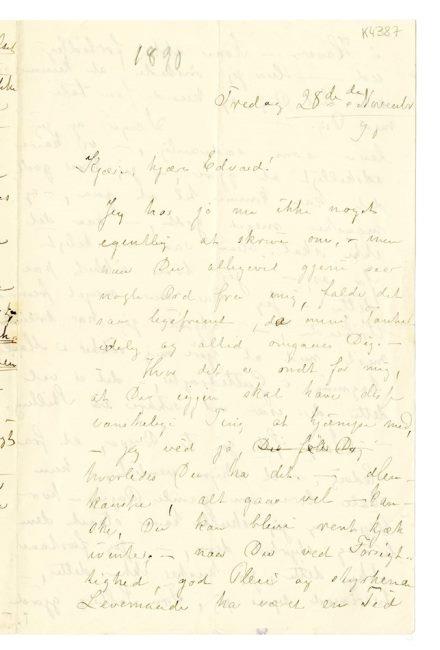 K4387
1890
Fredag 28de de November
90
Kjære, kjære Edvard!
Jeg har jo nu ikke noget
egentlig at skrive om, men
naar Du alligevel gjerne seer
nogle Ord fra mig, falde det
saa ligefremt, da mine Tanker
idelig og altid omgaaes Dig. –
– Hvor det er ondt for mig,
at Du igjen skal have disse
vanskelige Ting at kjæmpe med,
– jeg véd jo,
hvorledes Du ha det. –
kanske, alt gaar vel – kan-
ske, Du kan blive rent kjæk
inden – naar Du ved Forsigt-
lighed, god Pleie og styrkende
Levemaade ha været en Tid